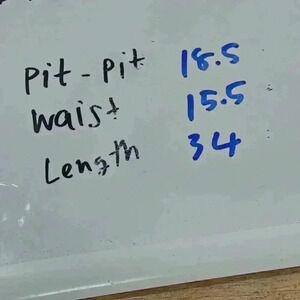 Pit-Pit 18.5
Waist 15.5
Length 34